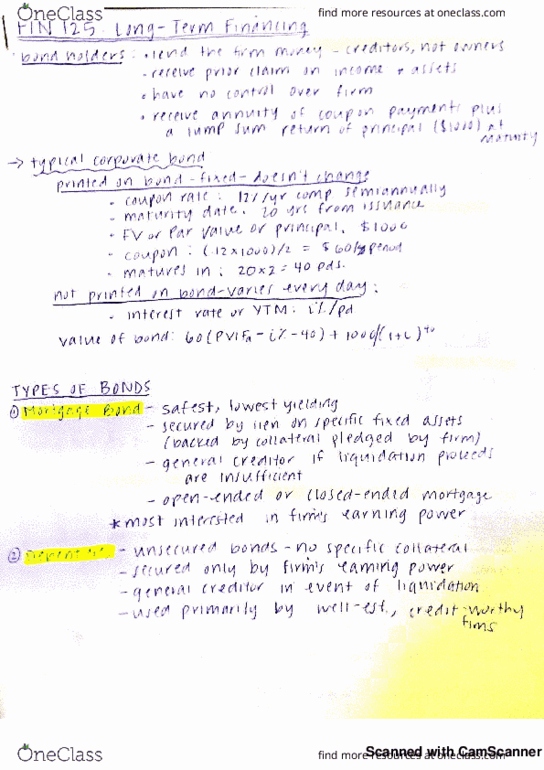 OneClass
find more resources at oneclass.com
FIN 125 Long-Term Financing
bond holders: • lend the firm money - creditors, not owners
- receive prior claim on income + assets
• have no control over firm
• receive annuity of coupon payments plus
a lump sum return of principal ($1000) at
maturity
→ typical corporate bond
printed on bond - fixed - doesn't change
- coupon rate: 12%/yr comp semiannually
- maturity date: 20 yrs from issuance
- FV or Par value or principal: $1000
- coupon: (.12x1000)/2 = $60/period
- matures in: 20x2 = 40 pds.
not printed on bond - varies every day:
- interest rate or YTM: i%/pd
value of bond: 60(PVIFa - i% - 40) + 1000/(1+i)^40
TYPES OF BONDS
① Mortgage Bond - safest, lowest yielding
- secured by lien on specific fixed assets
(backed by collateral pledged by firm)
- general creditor if liquidation proceeds
are insufficient
- open-ended or closed-ended mortgage
* most interested in firm's earning power
② - unsecured bonds - no specific collateral
- secured only by firm's earning power
- general creditor in event of liquidation
- used primarily by well-est., credit-worthy
firms
OneClass
find more resources at oneclass.com
Scanned with CamScanner